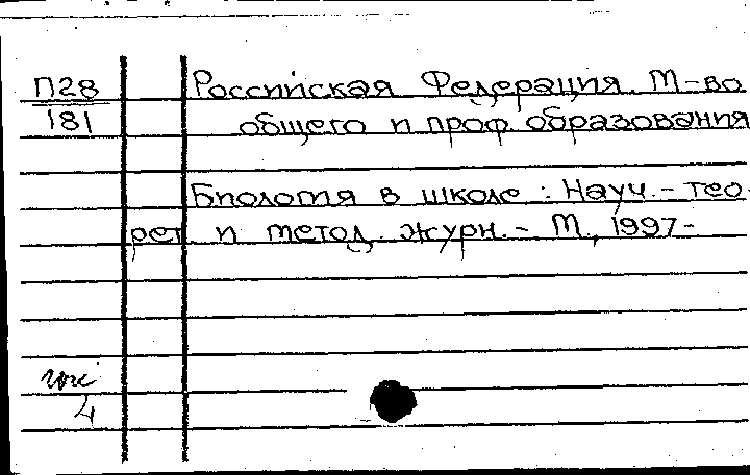 П28
181
Российская Федерация. М-во
общего и проф. образования
Биология в школе : Науч.-тео-
рет. и метод. журн. - М., 1997-
4